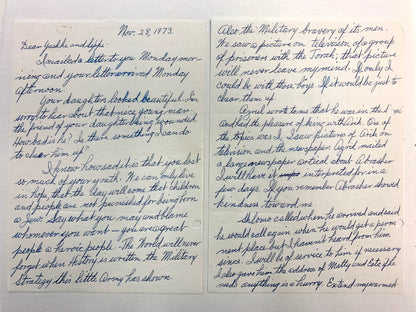 Nov. 28, 1973
Dear Yoshki and Lippi:
I mailed a letter to you Monday mor-
ning and your letter arrived Monday
afternoon.
Your daughters looked beautiful. I'm
sorry to hear about that nice young man
the friend of your daughter being wounded.
How bad is he? Is there something I can do
to cheer him up?
I know how sad it is that you lost
so much of your youth. We can only live
in hope that the day will come that children
and people are not punished for being born
a Jew. Say what you may and blame
whomever you want - you are a great
people a heroic people. The World will never
forget when History is written, the Military
Strategy this little Army has shown.
Also the Military bravery of its men.
We saw a picture on television of a group
of prisoners with the Torah, that picture
will never leave my mind. If only I
could be with those boys. If it would be just to
cheer them up.
wrote me that he was in that
and had the pleasure of being with Arik. One of
the topics was I. I saw pictures of Arik on
television and the newspaper. mailed
a large newspaper article about Abrasher
I will have it interpreted for in a
few days. If you remember Abrasher should
kindness toward me.
Shlomo called when he arrived and said
he would call again when he would get a perm-
nent place but I haven't heard from him
since. I will be of service to him if necessary
I also gave him the address of Matty and if he
needs anything in a hurry. Extend my warmest